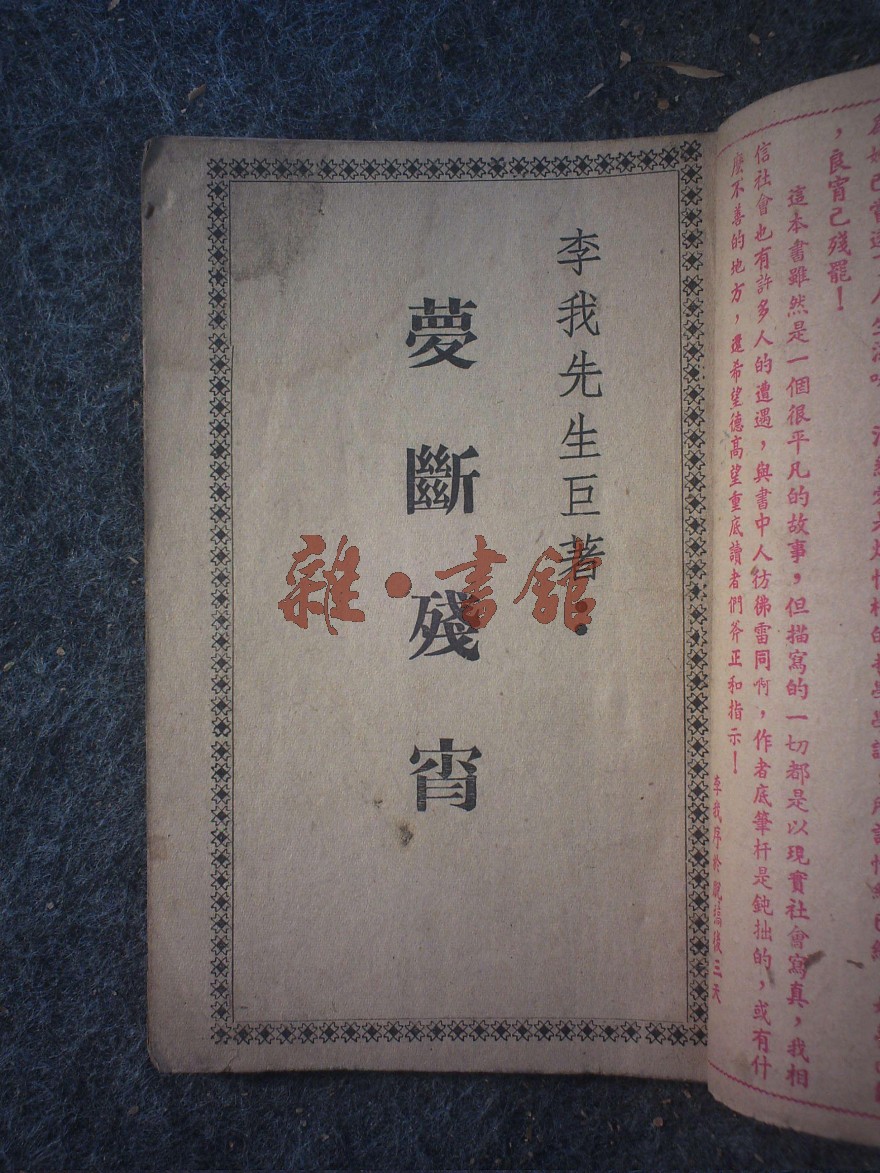 李我先生巨著：
夢斷殘宵
雜·書館
，良宵已殘罷！
這本書雖然是一個很平凡的故事，但描寫的一切都是以現實社會寫真，我相
信社會也有許多人的遭遇，與書中人彷彿雷同啊，作者底筆杆是鈍拙的，或有什
麼不善的地方，還希望德高望重底讀者們斧正和指示！
李我序於脫稿後三天